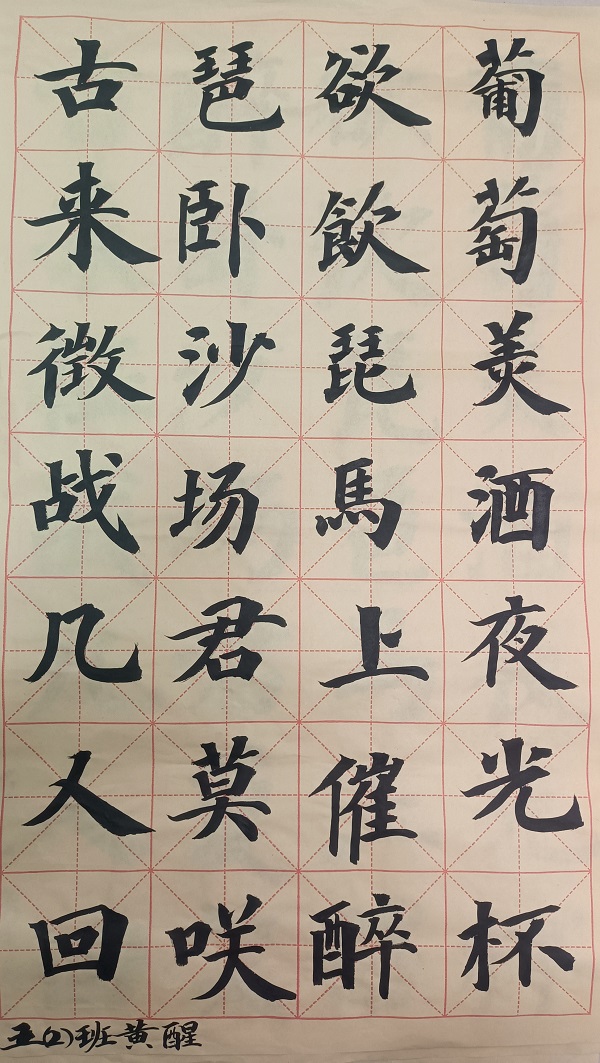 葡萄美酒夜光杯
欲飲琵馬上催醉
琶卧沙场君莫咲
古来徴战几人回
五(2)班黄醒